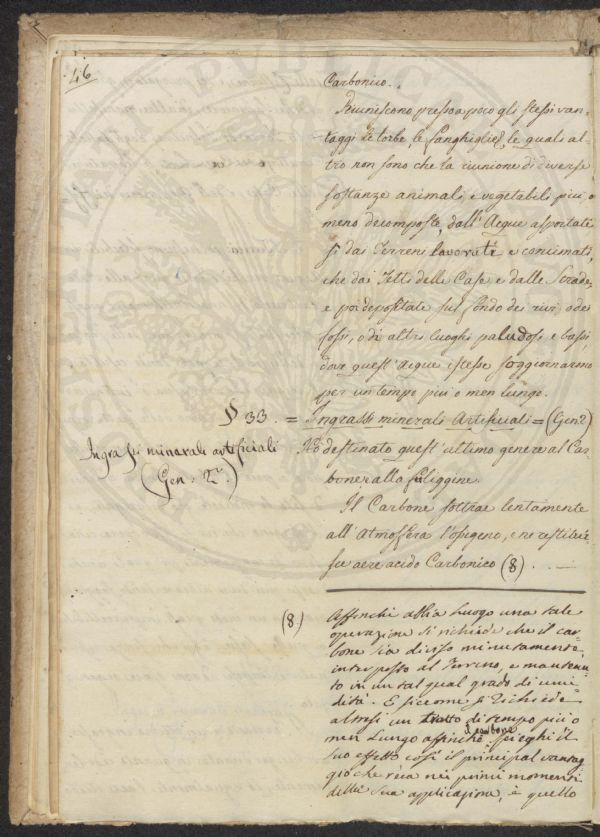 46
Carbonico.
Riuniscono pressoa poco gli stessi van-
taggi le torbe, le fanghiglie, le quali al-
tro non sono che la riunione di diverse
sostanze animali, e vegetabili più, o
meno decomposte, dall'Acque asportate
si dai Terreni lavorati e concimati,
che dai Tetti delle Case e dalle Strade,
e poi depositate sul fondo dei rivi, o dei
fossi, o di altri luoghi paludosi e bassi,
dove quest'acque istesse soggiornarono
per un tempo più o men lungo.
§ 33. = Ingrassi minerali Artificiali = (Gen. 2)
Ingrassi minerali artificiali
(Gen: 2°.)
Hò destinato quest'ultimo genere al Car-
bone, alla fuliggine.
Il Carbone sottrae lentamente
all'atmosfera l'ossigeno, e ne restitui-
sce aere acido Carbonico (8).
(8.) Affinchè abbia luogo una tale
operazione si richiede che il car-
bone sia diviso minutamente,
interposto al Terreno, e mantenu-
to in un tal qual grado di umi-
dità. E siccome si richiede
altresì un tratto di tempo più o
men lungo affinchè il carbone spieghi il
suo effetto così il principal vantag-
gio che reca nei primi momenti
della sua applicazione, è quello